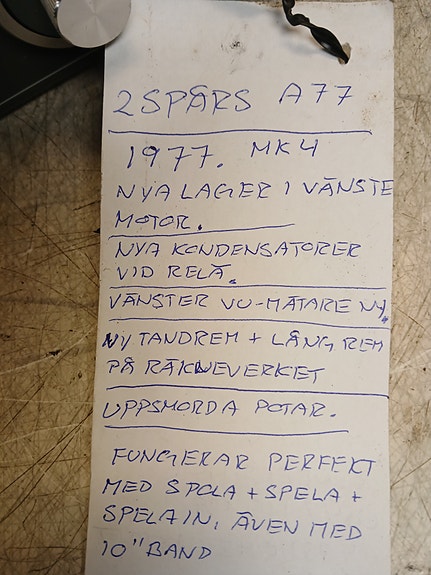 2 SPÅRS A77
1977. MK4
NYA LAGER I VÄNSTE
MOTOR.
NYA KONDENSATORER
VID RELÄ.
VÄNSTER VU-MÄTARE NY.
NY TANDREM + LÅNG REM
PÅ RÄKNEVERKET
UPPSMORDA POTAR.
FUNGERAR PERFEKT
MED SPOLA + SPELA +
SPELA IN, ÄVEN MED
10" BAND